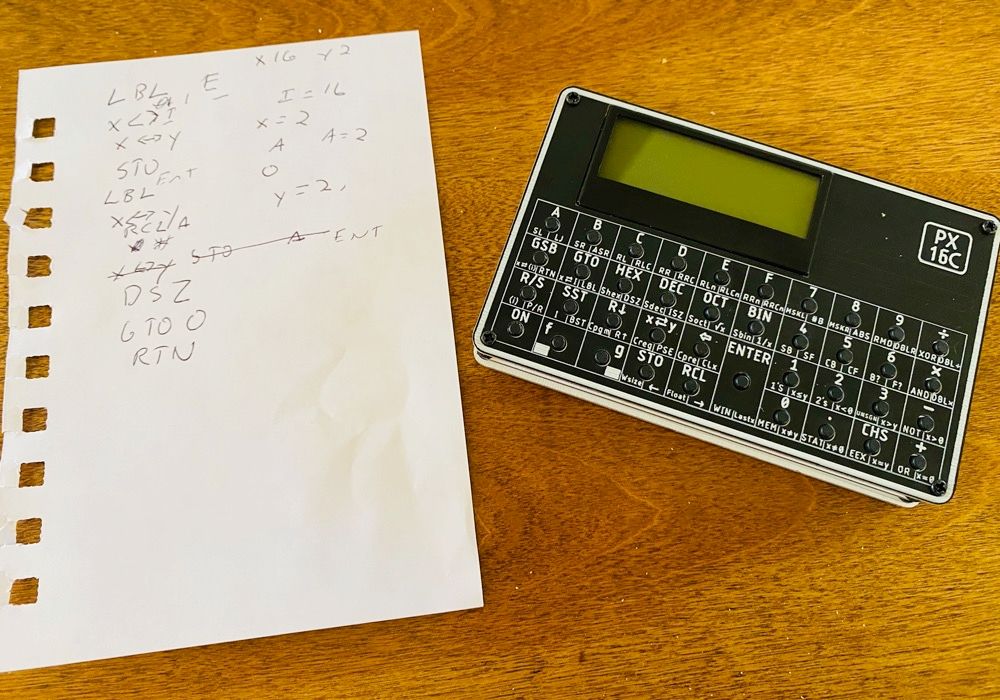 x 16 y 2
LBL E
I = 16
x <> I
x = 2
x ↔ y
A A = 2
STO
O
LBL ENT
y = 2,
x ↔ y
RCL A
x ↔ y STO A ENT
DSZ
GTO O
RTN
PX
16C
A B C D E F 7 8 9 ÷
SL LJ SR ASR RL RLC RR RRC RLn RLCn RRn RRCn MSKL #B MSKR ABS RMD DBLR XOR DBL÷
GSB GTO HEX DEC OCT BIN 4 5 6 ×
x⇄(i) RTN x⇄I LBL Shex DSZ Sdec ISZ Soct √x Sbin 1/x SB SF CB CF B? F? AND DBL×
R/S SST R↓ x⇄y ← ENTER 1 2 3 −
(i) P/R I BST Cpgm R↑ Creg PSE Cpre CLx 1'S x≤y 2's x<0 UNSGN x>y NOT x>0
ON f g STO RCL 0 . CHS +
Wsize ← Float → WIN Lastx MEM x≠y STAT x≠0 EEX x=y OR x=0